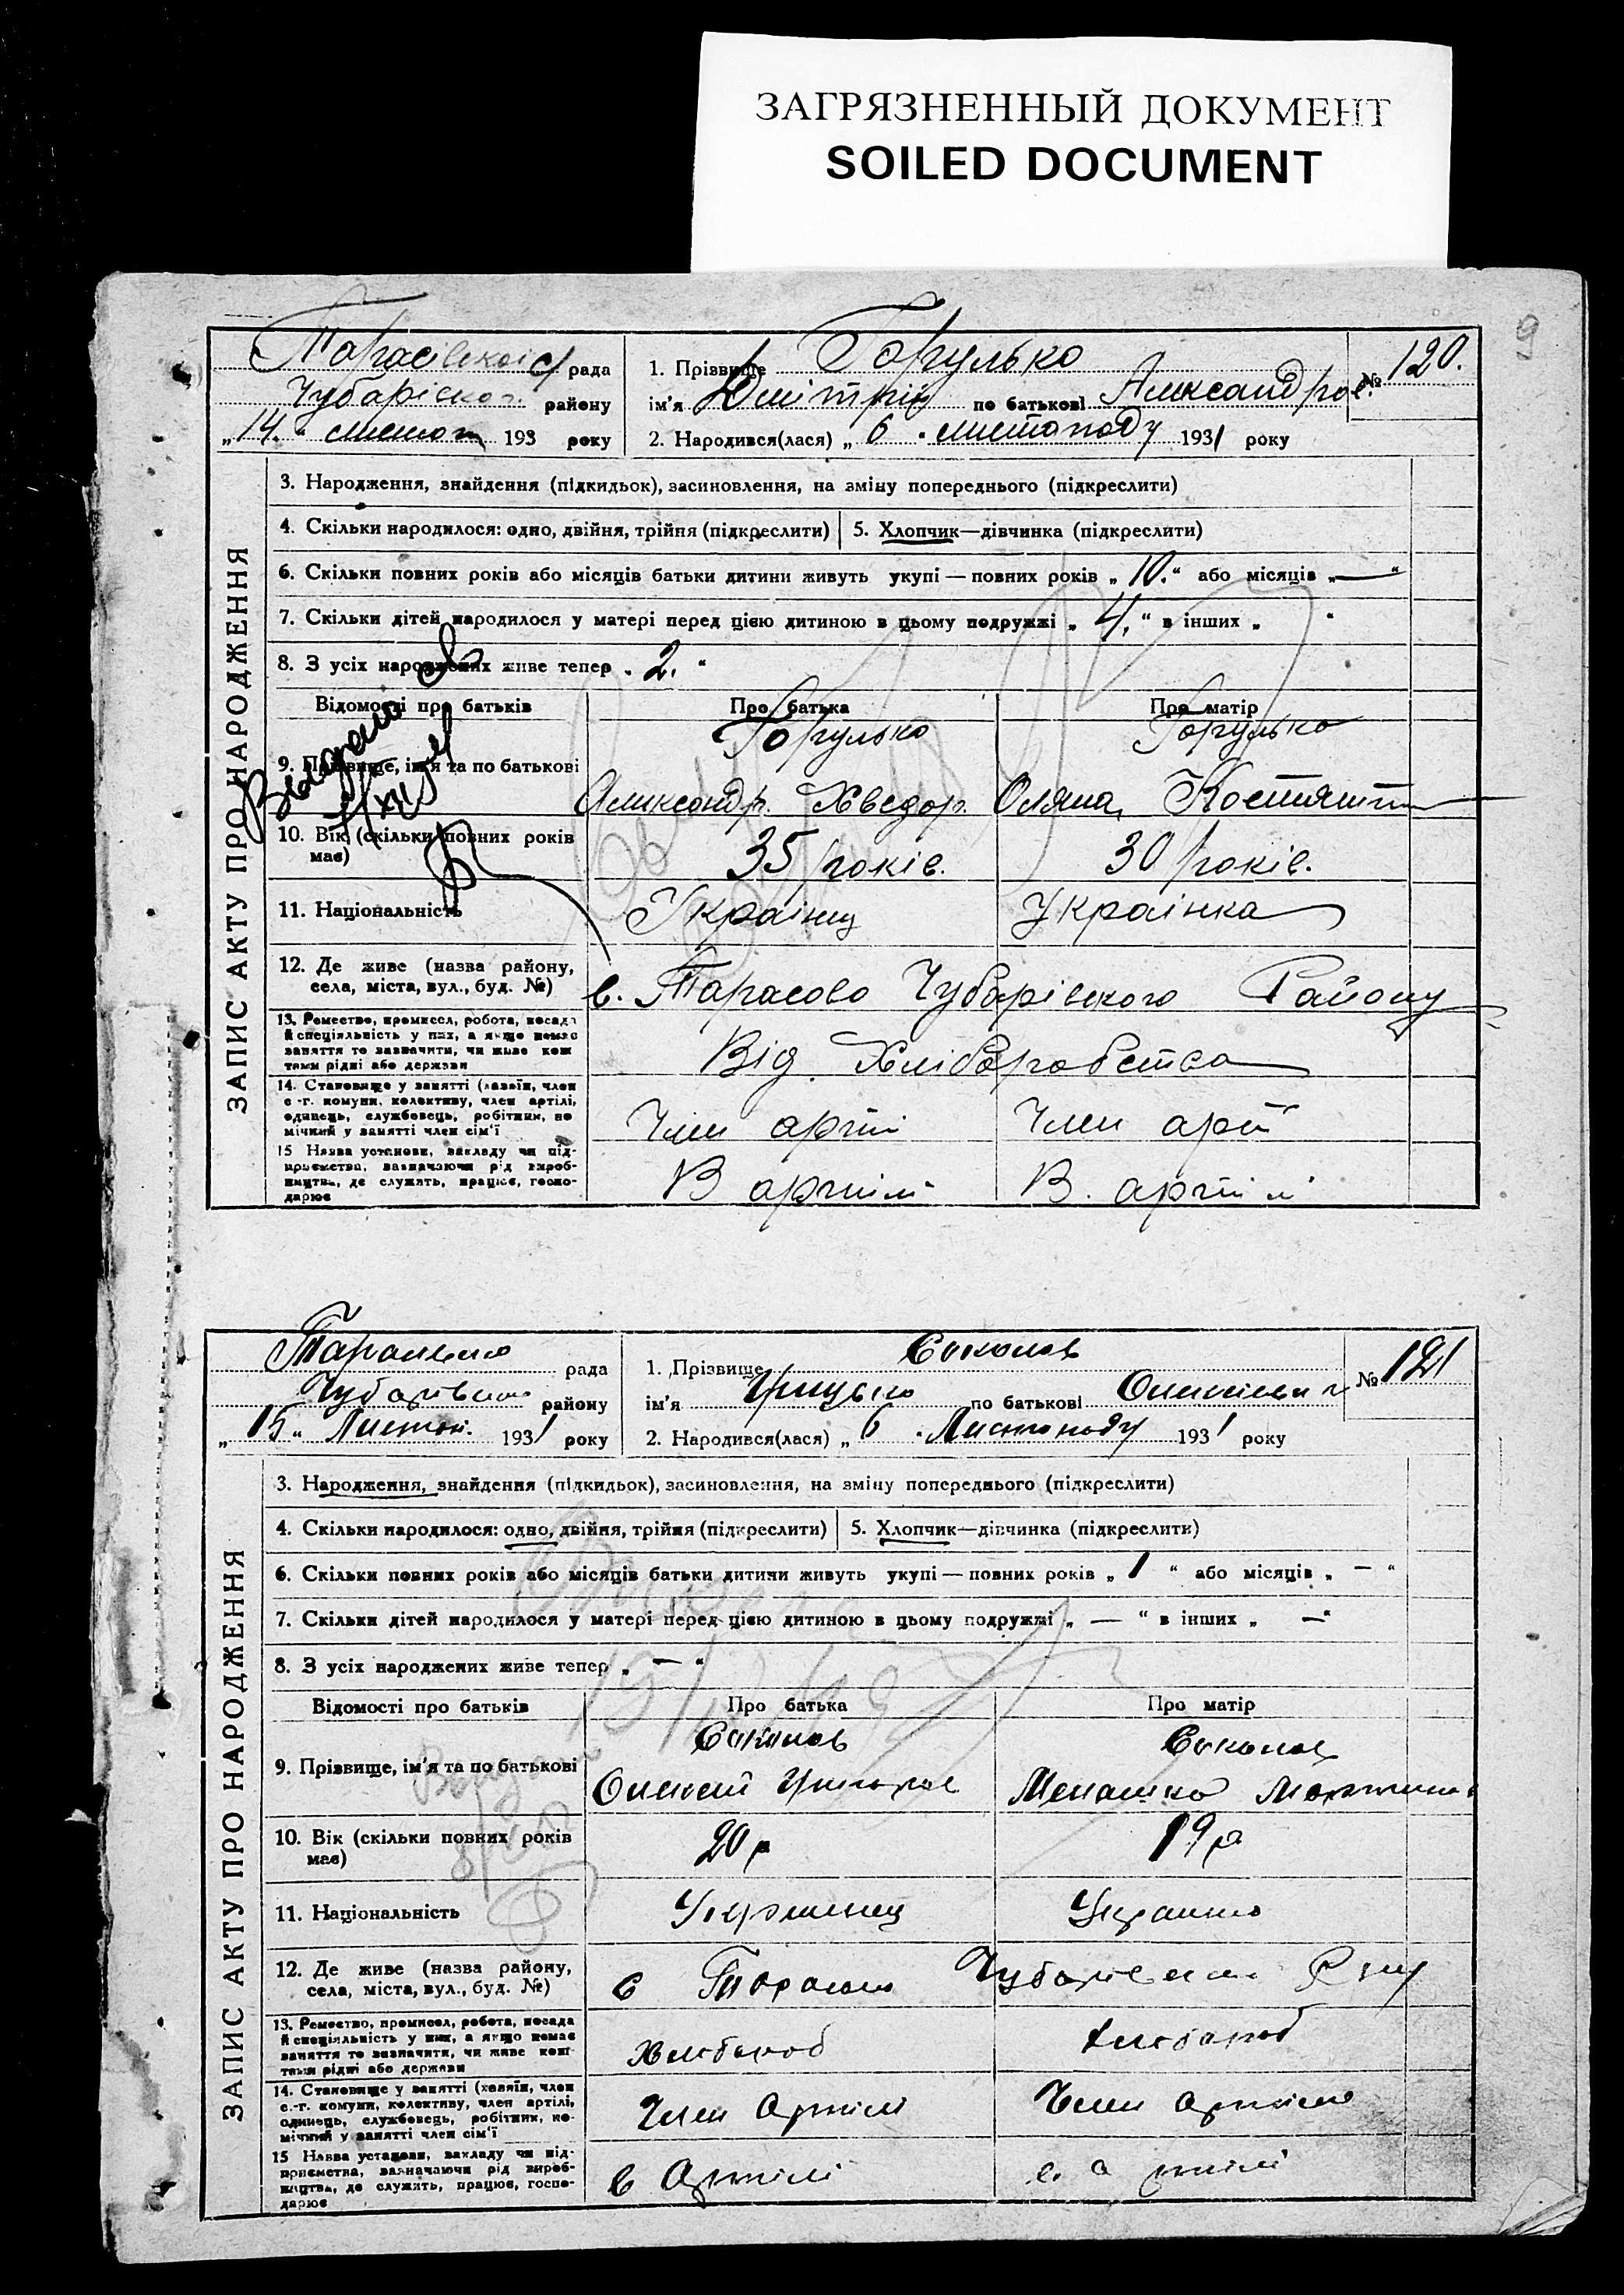 ЗАГРЯЗНЕННЫЙ ДОКУМЕНТ
SOILED DOCUMENT
9
Тарасівської с/ рада
Чубарівског. району
„14.“ листоп 193 року
1. Прізвище Горулько
ім'я Дмітрій по батькові Александров.
№ 120.
2. Народився(лася) „6“ листопаду 1931 року
ЗАПИС АКТУ ПРО НАРОДЖЕННЯ
3. Народження, знайдення (підкидьок), засиновлення, на зміну попереднього (підкреслити)
4. Скільки народилося: одно, двійня, трійня (підкреслити) 5. Хлопчик—дівчинка (підкреслити)
6. Скільки повних років або місяців батьки дитини живуть укупі — повних років „10.“ або місяців „—“
7. Скільки дітей народилося у матері перед цією дитиною в цьому подружжі „4.“ в інших „ “
8. З усіх народжених живе тепер „2.“
Відомості про батьків Про батька Про матір
Горулько Горулько
9. Прізвище, ім'я та по батькові
Александр. Хведор. Оляна
10. Вік (скільки повних років має) 35 років. 30 років.
11. Національність Українц Українка
12. Де живе (назва району, села, міста, вул., буд. №) с. Тарасово Чубарівского Району
13. Ремество, промисел, робота, посада й спеціяльність у них, а якщо немає заняття то зазначити, чи живе коштами рідні або держави
Від. Хліборобства
14. Становище у занятті (хазяїн, член с.-г. комуни, колективу, член артілі, одинець, службовець, робітник, помічний у занятті член сім'ї
Член арті Член арт
15 Назва установи, закладу чи підприємства, зазначаючи рід виробництва, де служить, працює, господарює
В артілі В. артілі
Видано
рада
Чубарівско району
„15“ Листоп. 1931 року
1. Прізвище Соколов
ім'я Грицько по батькові Олексієвич
№ 121
2. Народився(лася) „6“ Листопаду 1931 року
ЗАПИС АКТУ ПРО НАРОДЖЕННЯ
3. Народження, знайдення (підкидьок), засиновлення, на зміну попереднього (підкреслити)
4. Скільки народилося: одно, двійня, трійня (підкреслити) 5. Хлопчик—дівчинка (підкреслити)
6. Скільки повних років або місяців батьки дитини живуть укупі — повних років „1“ або місяців „—“
7. Скільки дітей народилося у матері перед цією дитиною в цьому подружжі „—“ в інших „—“
8. З усіх народжених живе тепер „—“
Відомості про батьків Про батька Про матір
Соколов Соколов
9. Прізвище, ім'я та по батькові
Олексій Григоров
10. Вік (скільки повних років має) 20 р 19 р
11. Національність Українец
12. Де живе (назва району, села, міста, вул., буд. №) с
13. Ремество, промисел, робота, посада й спеціяльність у них, а якщо немає заняття то зазначити, чи живе коштами рідні або держави
Хлібороб Хлібороб
14. Становище у занятті (хазяїн, член с.-г. комуни, колективу, член артілі, одинець, службовець, робітник, помічний у занятті член сім'ї
Член Артілі Член Артілі
15 Назва установи, закладу чи підприємства, зазначаючи рід виробництва, де служить, працює, господарює
в Артілі в артілі